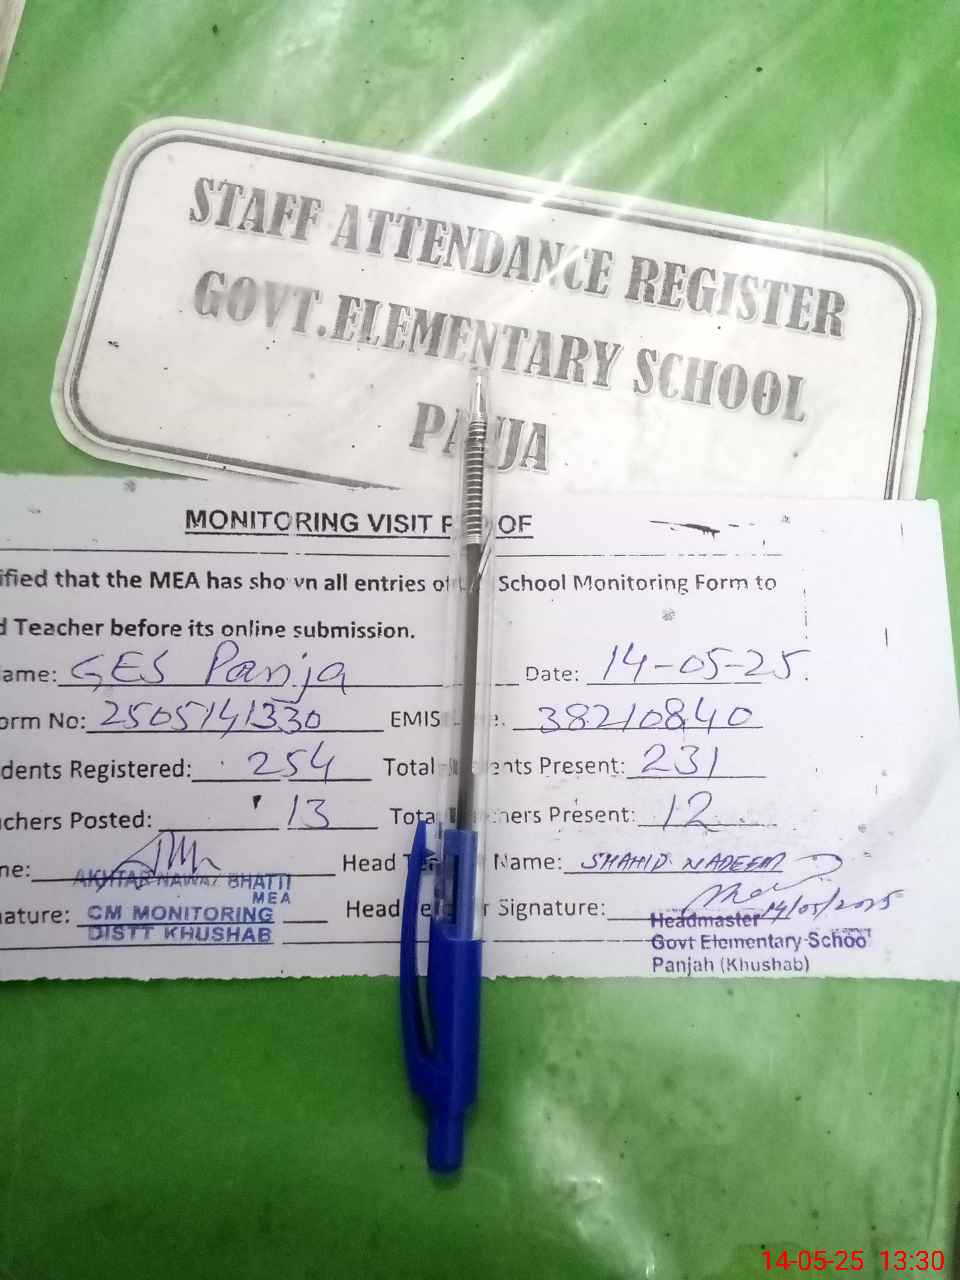 STAFF ATTENDANCE REGISTER
GOVT.ELEMENTARY SCHOOL
PANJA
MONITORING VISIT OF
ified that the MEA has shown all entries of School Monitoring Form to
d Teacher before its online submission.
ame: GES Panja Date: 14-05-25.
orm No: 2505141330 EMIS 38210840
dents Registered: 254 Total nts Present: 231
chers Posted: 13 Tota hers Present: 12
ne: Head Te Name: SHAHID NADEEM
AKHTAR NAWAZ BHATTI
MEA
ature: CM MONITORING Head r Signature: 14/05/2025
DISTT KHUSHAB
Headmaster
Govt Elementary School
Panjah (Khushab)
14-05-25 13:30